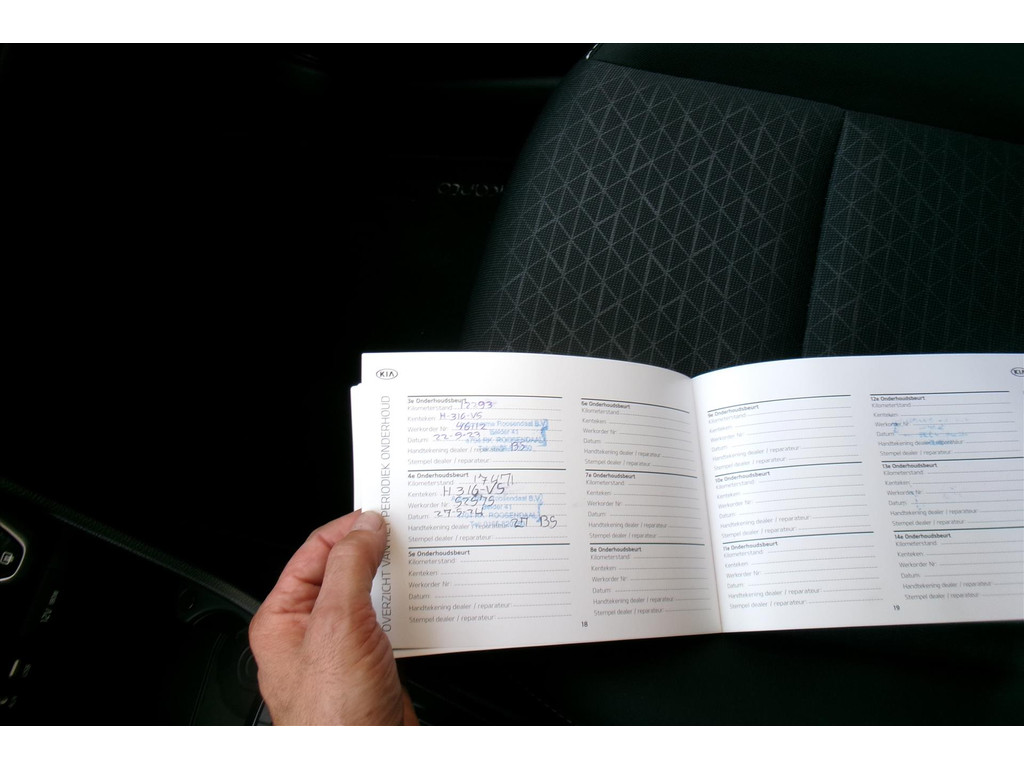 KIA
OVERZICHT VAN HET PERIODIEK ONDERHOUD
3e Onderhoudsbeurt
Kilometerstand:
Kenteken: H-316-VS
Werkorder Nr: 46112
Datum: 22-9-23
Handtekening dealer / reparateur: BS
Stempel dealer / reparateur:
Roosendaal B.V.
ROOSENDAAL
4e Onderhoudsbeurt
Kilometerstand: 17471
Kenteken: H 316-VS
Werkorder Nr: 52575
Datum:
Handtekening dealer / reparateur: BS
Stempel dealer / reparateur:
Roosendaal B.V.
ROOSENDAAL
5e Onderhoudsbeurt
Kilometerstand:
Kenteken:
Werkorder Nr:
Datum:
Handtekening dealer / reparateur:
Stempel dealer / reparateur:
6e Onderhoudsbeurt
Kilometerstand:
Kenteken:
Werkorder Nr:
Datum:
Handtekening dealer / reparateur:
Stempel dealer / reparateur:
7e Onderhoudsbeurt
Kilometerstand:
Kenteken:
Werkorder Nr:
Datum:
Handtekening dealer / reparateur:
Stempel dealer / reparateur:
8e Onderhoudsbeurt
Kilometerstand:
Kenteken:
Werkorder Nr:
Datum:
Handtekening dealer / reparateur:
Stempel dealer / reparateur:
18
9e Onderhoudsbeurt
Kilometerstand:
Kenteken:
Werkorder Nr:
Datum:
Handtekening dealer / reparateur:
Stempel dealer / reparateur:
10e Onderhoudsbeurt
Kilometerstand:
Kenteken:
Werkorder Nr:
Datum:
Handtekening dealer / reparateur:
Stempel dealer / reparateur:
11e Onderhoudsbeurt
Kilometerstand:
Kenteken:
Werkorder Nr:
Datum:
Handtekening dealer / reparateur:
Stempel dealer / reparateur:
KIA
12e Onderhoudsbeurt
Kilometerstand:
Kenteken:
Werkorder Nr:
Datum:
Handtekening dealer
Stempel dealer / reparateur:
13e Onderhoudsbeurt
Kilometerstand:
Kenteken:
Werkorder Nr:
Datum:
Handtekening dealer / reparateur:
Stempel dealer / reparateur:
14e Onderhoudsbeurt
Kilometerstand:
Kenteken:
Werkorder Nr:
Datum:
Handtekening dealer / reparateur:
Stempel dealer / reparateur:
19
12V